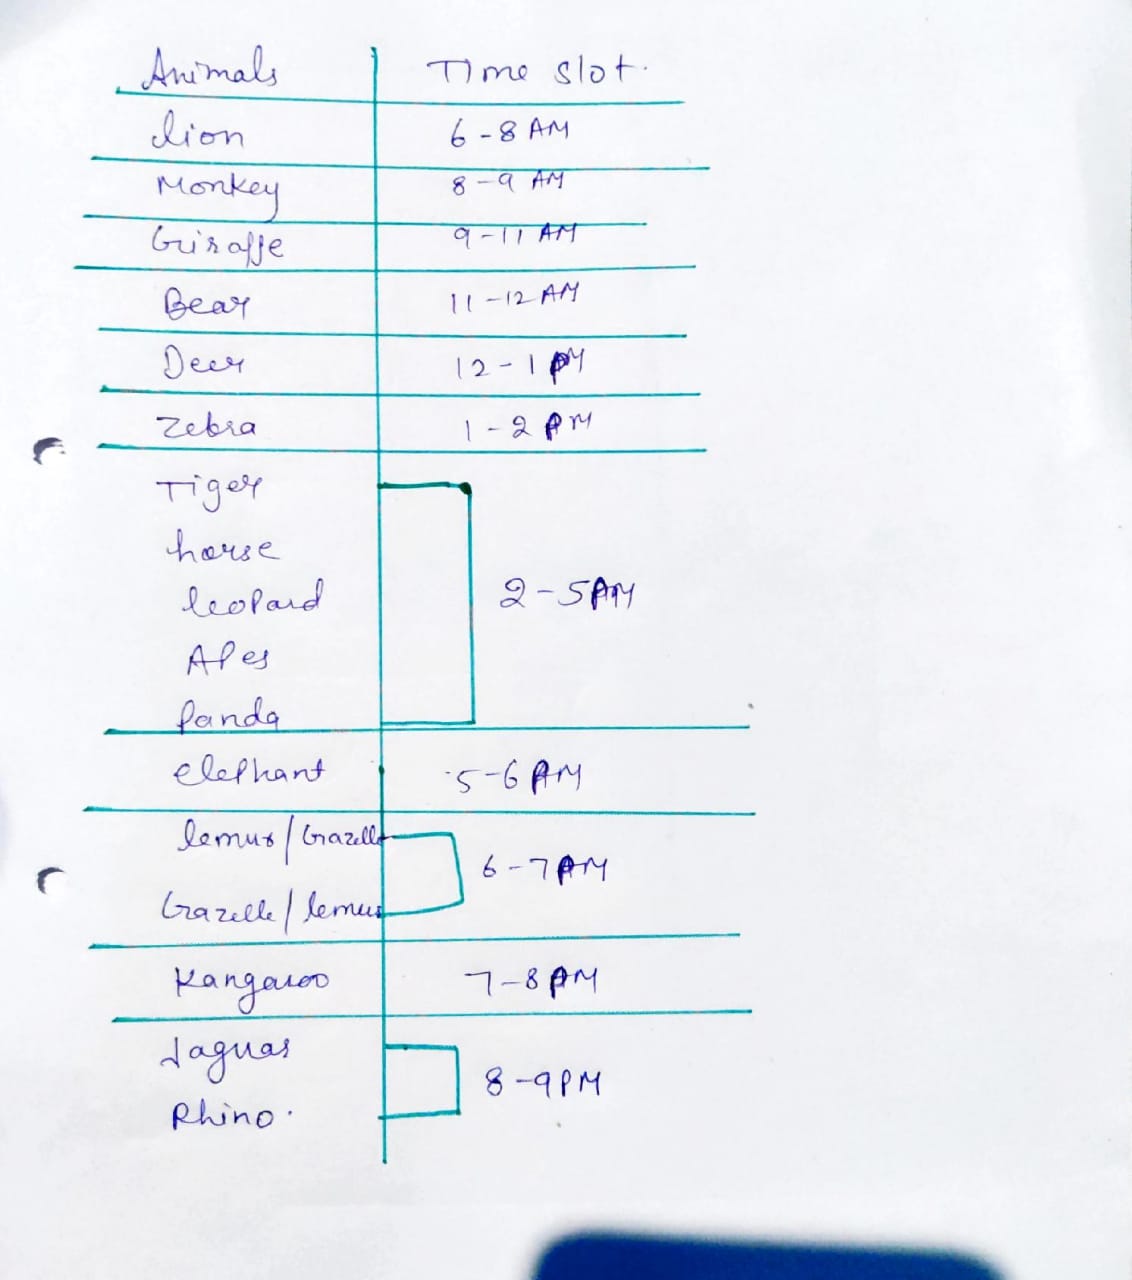 Animals Time slot.
lion 6-8 AM
Monkey 8-9 AM
Giraffe 9-11 AM
Bear 11-12 AM
Deer 12-1 PM
Zebra 1-2 PM
Tiger
horse
leopard 2-5
Apes
Panda
elephant 5-6
lemur/Gazelle
6-7
Gazelle/lemur
Kangaroo 7-8 PM
Jaguar
8-9 PM
Rhino.